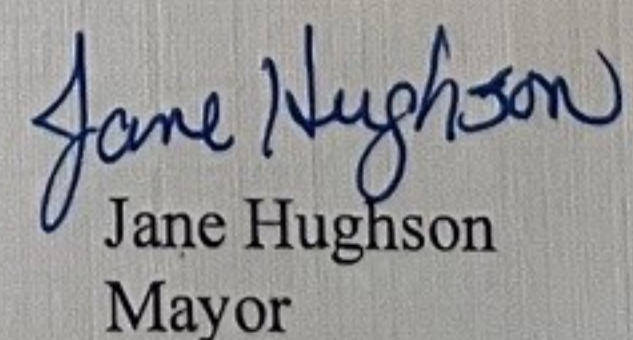 Jane Hughson
Jane Hughson
Mayor